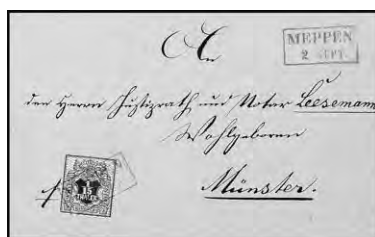 An
MEPPEN
2 SEPT.
den Herrn Justizrath und Notar Leesemann
Wohlgeboren
15
THALER
Münster.